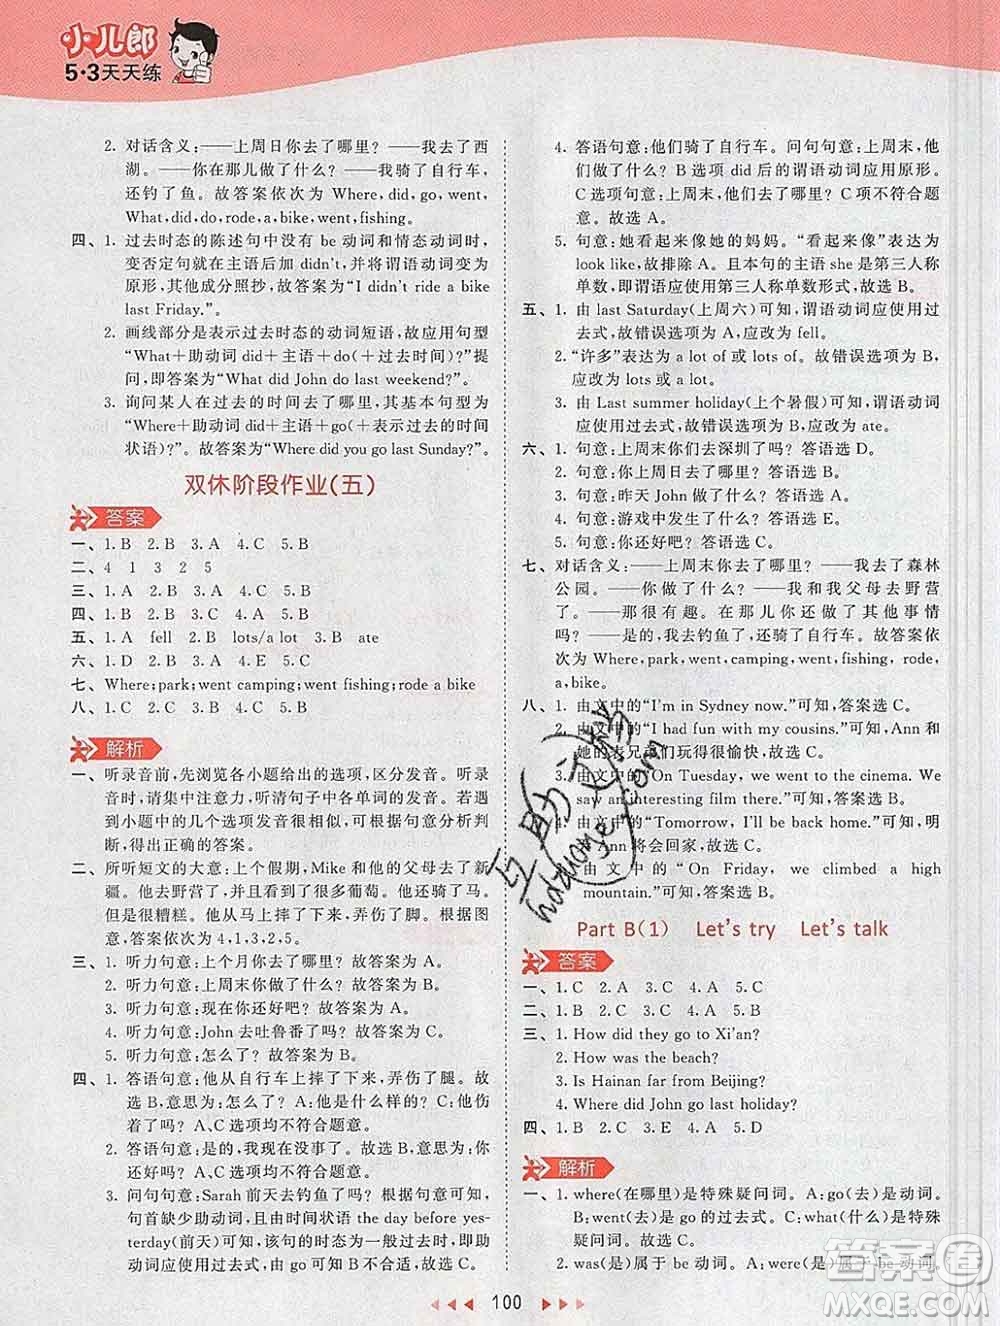 小儿郎
5·3天天练
2. 对话含义:——上周日你去了哪里?——我去了西
湖。——你在那儿做了什么?——我骑了自行车,
还钓了鱼。故答案依次为 Where, did, go, went,
What, did, do, rode, a, bike, went, fishing。
四、1. 过去时态的陈述句中没有 be 动词和情态动词时,
变否定句就在主语后加 didn't,并将谓语动词变为
原形,其他成分照抄,故答案为“I didn't ride a bike
last Friday.”。
2. 画线部分是表示过去时态的动词短语,故应用句型
“What+助动词 did+主语+do(+过去时间)?”提
问,即答案为“What did John do last weekend?”。
3. 询问某人在过去的时间去了哪里,其基本句型为
“Where+助动词 did+主语+go(+过去的时间
状语)?”。故答案为“Where did you go last Sunday?”。
双休阶段作业(五)
答案
一、1. B 2. B 3. A 4. C 5. B
二、4 1 3 2 5
三、1. A 2. B 3. A 4. C 5. B
四、1. B 2. B 3. C 4. A 5. B
五、1. A fell 2. B lots/a lot 3. B ate
六、1. D 2. A 3. B 4. E 5. C
七、Where; park; went camping; went fishing; rode a bike
八、1. C 2. C 3. A 4. C 5. B
解析
一、听录音前,先浏览各小题给出的选项,区分发音。听录
音时,请集中注意力,听清句子中各单词的发音。若遇
到小题中的几个选项发音很相似,可根据句意分析判
断,得出正确的答案。
二、所听短文的大意:上个假期,Mike 和他的父母去了新
疆。他去野营了,还吃了很多葡萄。他还骑了马。
但是很糟糕。他从马上摔了下来,弄伤了脚。根据图
意,答案依次为 4,1,3,2,5。
三、1. 听力句意:上个月你去了哪里?故答案为 A。
2. 听力句意:上周末你做了什么?故答案为 B。
3. 听力句意:现在你还好吧?故答案为 A。
4. 听力句意:John 去吐鲁番了吗?故答案为 C。
5. 听力句意:怎么了?故答案为 B。
四、1. 答语句意:他从自行车上摔了下来,弄伤了腿。故
选 B,意思为:发生了什么?A:他去骑自行车了。C:他
伤着了吗?A、C 选项均不符合题意。
2. 答语句意:是的,我现在没事了。故选 B,意思为:你
还好吗?A、C 选项均不符合题意。
3. 问句句意:Sarah 前天去钓鱼了吗?根据句意可知,
句首缺少助动词,由时间状语 the day before yes-
terday(前天)可知,该句的时态为一般过去时,故助
动词应使用过去式,由 go 可知 B 不合适,故选 C。
4. 答语句意:他们骑了自行车。问句句意:上周末他
们做了什么?B 选项 did 后的谓语动词应用原形。
C 选项句意:上周末,他们去了哪里?C 项不符合题
意。故选 A。
5. 句意:她看起来像她的妈妈。“看起来像”表达为
look like,故排除 A。且本句的主语 she 是第三人称
单数,即谓语应使用第三人称单数形式。故选 B。
五、1. 由 last Saturday(上周六)可知,谓语动词应使用过
去式,故错误选项为 A,应改为 fell。
2. “许多”表达为 a lot of 或 lots of。故错误选项为 B,
应改为 lots 或 a lot。
3. 由 Last summer holiday(上个暑假)可知,谓语动词
应使用过去式,故错误选项为 B,应改为 ate。
六、1. 句意:上周末你们去了深圳了吗?答语选 D。
2. 句意:你上周末去了哪里?答语选 A。
3. 句意:昨天 John 做了什么?答语选 B。
4. 句意:游戏中发生了什么?答语选 E。
5. 句意:你还好吧?答语选 C。
七、对话含义:——上周末你去了哪里?——我去了森林
公园。——你做了什么?——我和我父母去野营
了。——那很有趣。在那儿你还做了其他事情
吗?——是的,我去钓鱼了,还骑了自行车。故答案依
次为 Where, park, went, camping, went, fishing, rode,
a, bike。
八、1. 由文中的“I'm in Sydney now.”可知,答案选 C。
由文中的“I had fun with my cousins.”可知,Ann 和
她的表兄弟们玩得很愉快,故选 C。
3. 由文中的“On Tuesday, we went to the cinema. We
saw an interesting film there.”可知,答案选 A。
由文中的“Tomorrow, I'll be back home.”可知,明
天 Ann 将会回家,故选 C。
由文中的“On Friday, we climbed a high
mountain.”可知,答案选 B。
Part B(1) Let's try Let's talk
答案
一、1. C 2. A 3. C 4. A 5. C
二、1. B 2. C 3. B 4. A 5. B
三、1. How did they go to Xi'an?
2. How was the beach?
3. Is Hainan far from Beijing?
4. Where did John go last holiday?
四、1. C 2. B 3. A 4. E 5. D
解析
一、1. where(在哪里)是特殊疑问词。A:go(去)是动词。
B:went(去)是 go 的过去式。C:what(什么)是特殊
疑问词。故选 C。
2. was(是)属于 be 动词。A:were(是)属于 be 动词。
100
互助文档
hdzuoye.com
答案圈
MXQE.COM